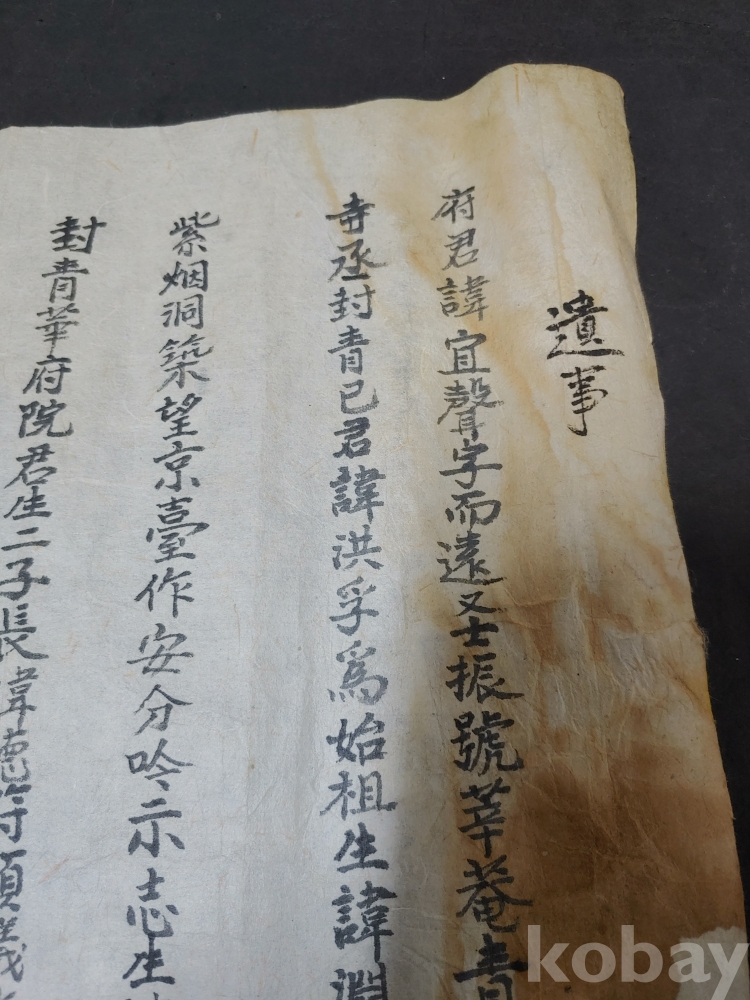 遺事
府君諱宜聲字而遠又士振號莘菴青
寺丞封青已君諱洪孚爲始祖生諱淵
紫烟洞築望京臺作安分吟示志生
封青華府院君生二子長諱德符
kobay